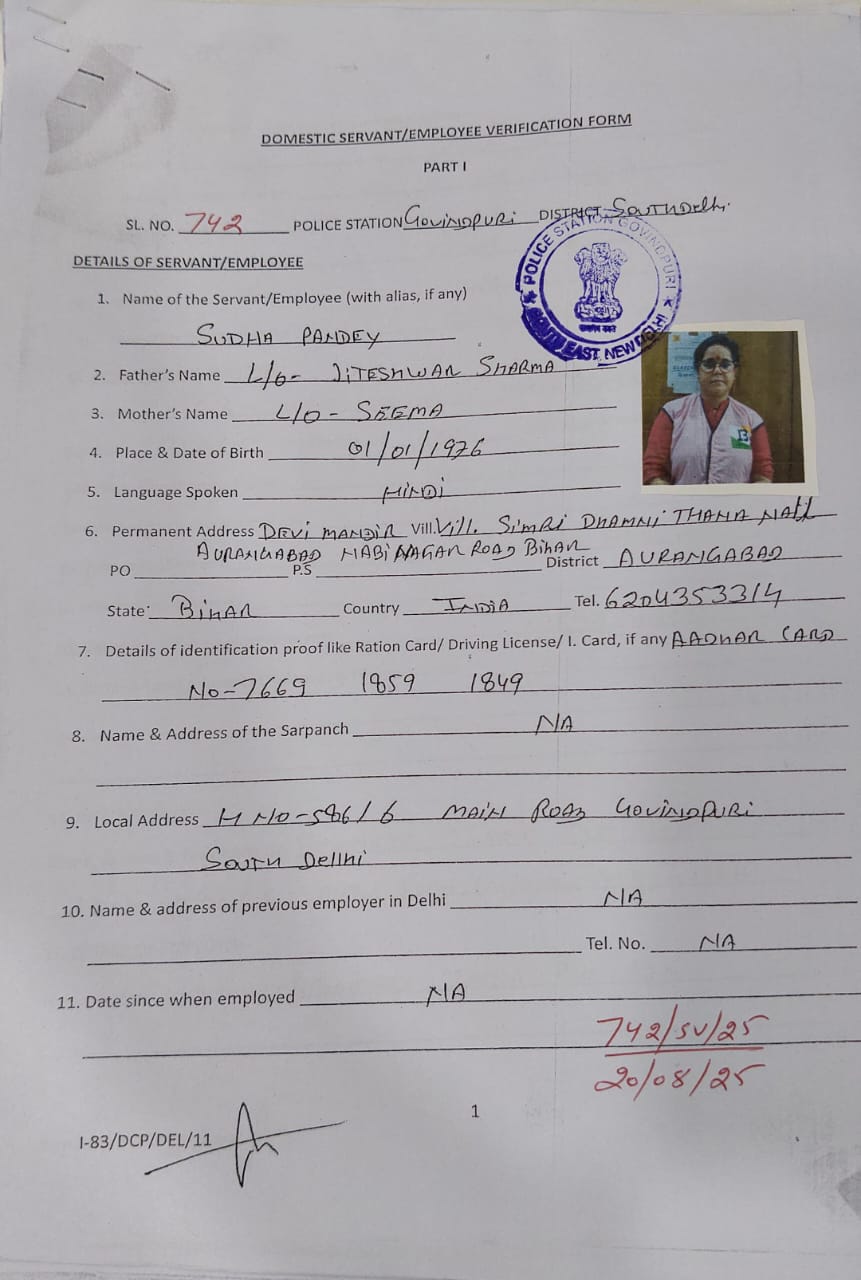 DOMESTIC SERVANT/EMPLOYEE VERIFICATION FORM
PART I
SL. NO. 742 POLICE STATION GOVINDPURI DISTRICT SOUTH Delhi.
POLICE STATION GOVINDPURI
SOUTH EAST NEW DELHI
DETAILS OF SERVANT/EMPLOYEE
1. Name of the Servant/Employee (with alias, if any)
SUDHA PANDEY
2. Father's Name L/O- JITESHWAR SHARMA
3. Mother's Name L/O - SEEMA
4. Place & Date of Birth 01/01/1976
5. Language Spoken HINDI
6. Permanent Address DEVI MANDIR Vill. Vill. SIMRI DHAMNI THANA
AURANGABAD NABINAGAR ROAD BIHAR
PO P.S District AURANGABAD
State: BIHAR Country INDIA Tel. 6204353314
7. Details of identification proof like Ration Card/ Driving License/ I. Card, if any AADHAR CARD
No-7669 1859 1849
8. Name & Address of the Sarpanch NA
9. Local Address H NO-586/6 MAIN ROAD GOVINDPURI
SOUTH Dellhi
10. Name & address of previous employer in Delhi NA
Tel. No. NA
11. Date since when employed NA
742/SV/25
20/08/25
1
I-83/DCP/DEL/11